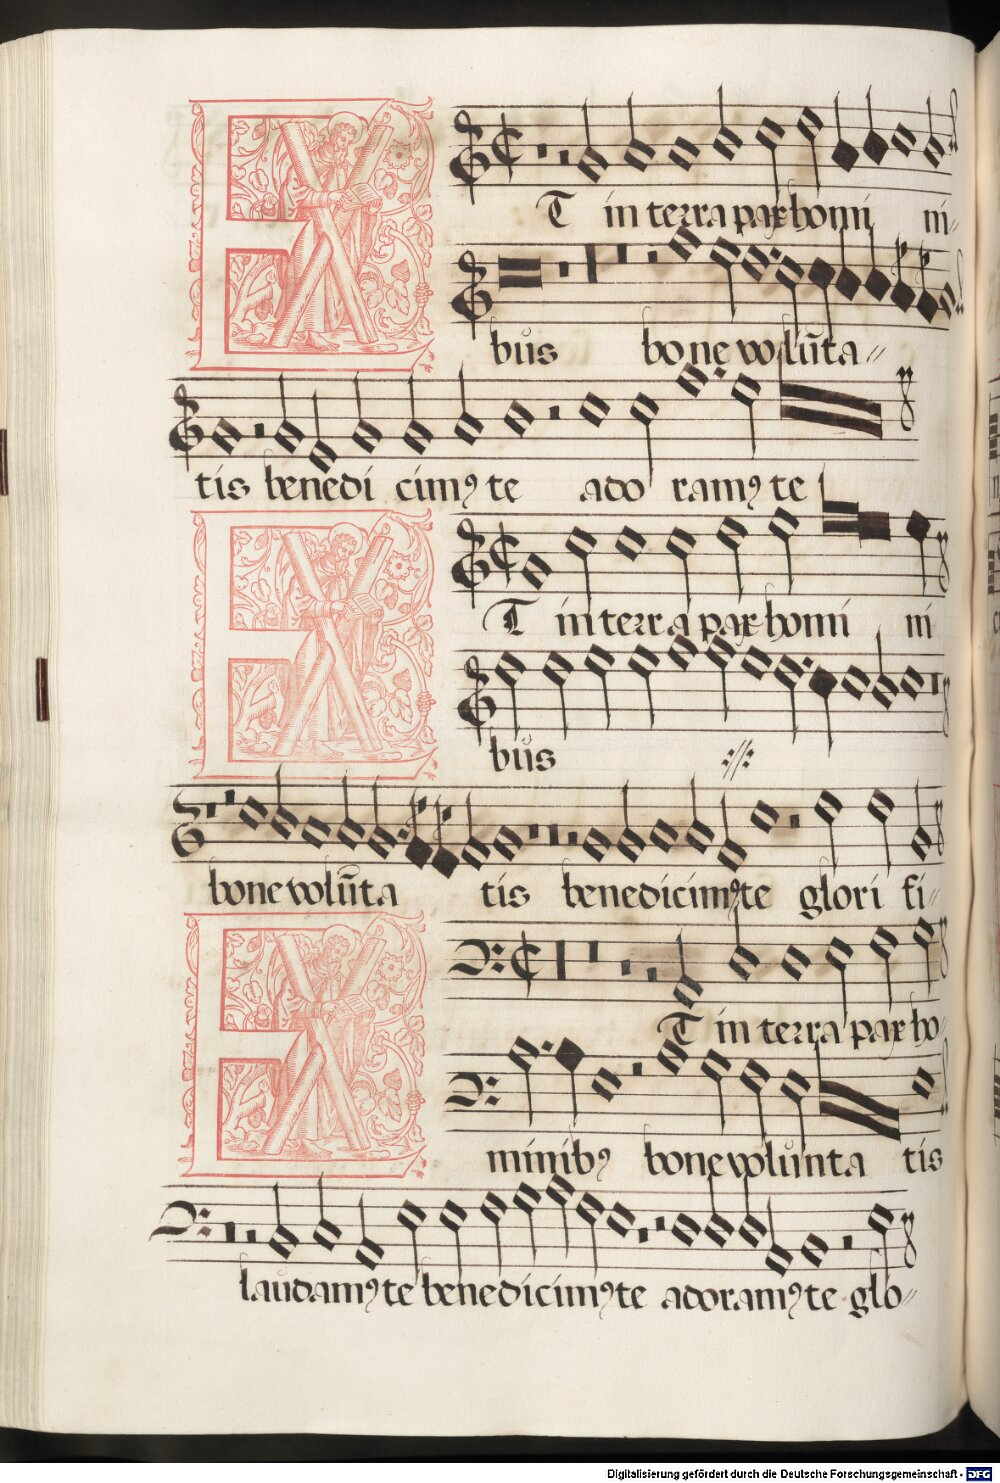 ET in terra pax homi ni-
bus bone volūta-
tis benedi cimꝰ te ado ramꝰ te
ET in terra pax homi ni
bus :||:
bone volūta tis benedicimꝰ te glori fi-
ET in terra pax ho-
minibꝰ bone volunta tis
laudamꝰ te benedicimꝰ te adoramꝰ te glo-
Digitalisierung gefördert durch die Deutsche Forschungsgemeinschaft - DFG